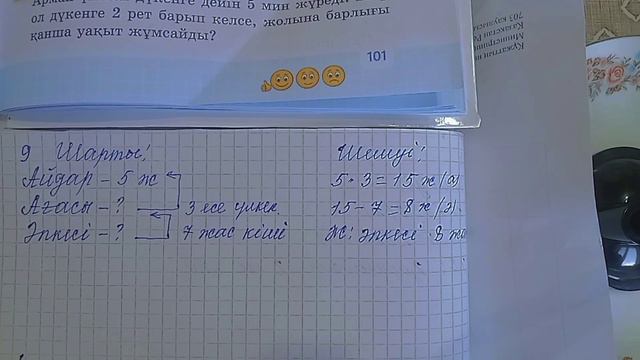 дүкенге дейін 5 мин жүреді.
ол дүкенге 2 рет барып келсе, жолына барлығы
қанша уақыт жұмсайды?
101
9 Шарты: Шешуі:
Айдар – 5 ж 5·3=15 ж (а)
Ағасы – ? 3 есе үлкен 15–7=8 ж (ә)
Әпкесі – ? 7 жас кіші Ж: Әпкесі 8